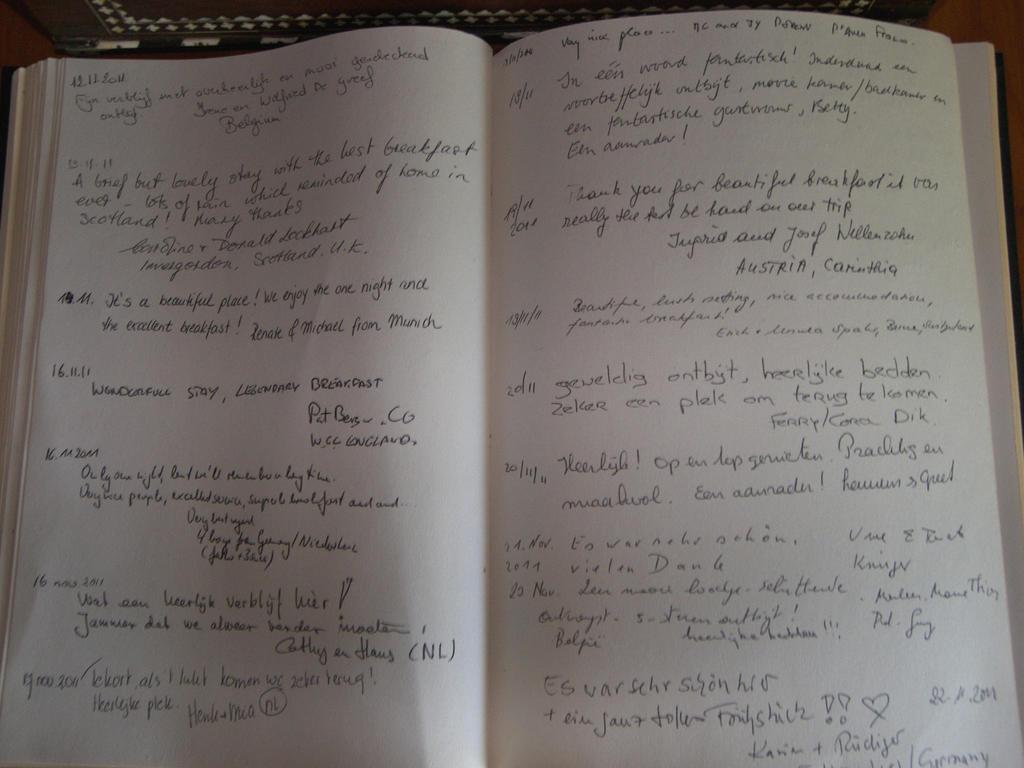 12.11.2011
Fijn verblijf met overheerlijk en mooi gedecoreerd
ontbijt Irene en Wilfried De greef
Belgium
A brief but lovely stay with the best breakfast
ever - lots of rain which reminded of home in
Scotland! Many thanks
Caroline + Donald Lockhart
Invergordon, Scotland, U.K.
14.11. It's a beautiful place! We enjoy the one night and
the excellent breakfast! Renate & Michael from Munich
16.11.11
WONDERFULL STAY, LEGENDARY BREAKFAST
16.11.2011
Only one night, but we'll remember a long time.
Very nice people, excellent service, superb breakfast and and...
Very best regards
4 boys from Germany/
16 nov 2011
Wat een heerlijk verblijf hier!
Jammer dat we alweer verder moeten!
Cathy en Hans (NL)
19 nov 2011 Te kort, als 't lukt komen we zeker terug!
Heerlijke plek. Henk + Mia nl
Very nice place...
18/11 In één woord fantastisch! Inderdaad een
voortreffelijk ontbijt, mooie kamer/badkamer en
een fantastische gastvrouw, Betty.
Een aanrader!
19/11 2011 Thank you for beautiful breakfast it was
really the best we had on our trip
Ingrid and Josef Wellenzohn
AUSTRIA, Carinthia
Beautiful, lush setting, nice accommodation,
fantastic breakfast!
20/11 geweldig ontbijt, heerlijke bedden.
Zeker een plek om terug te komen.
Ferry/Cora Dik.
20/11/11 Heerlijk! Op en top genieten. Prachtig en
smaakvol. Een aanrader!
21. Nov. Es war sehr schön.
2011 vielen Dank
23 Nov. Een mooie lodge - schitterende
ontvangst - 5-sterren ontbijt!
België heerlijke bedden!!!
Es war sehr schön hier 22.11.2011
+ ein ganz tolles Frühstück !! ♡
Karin + Rüdiger
/Germany